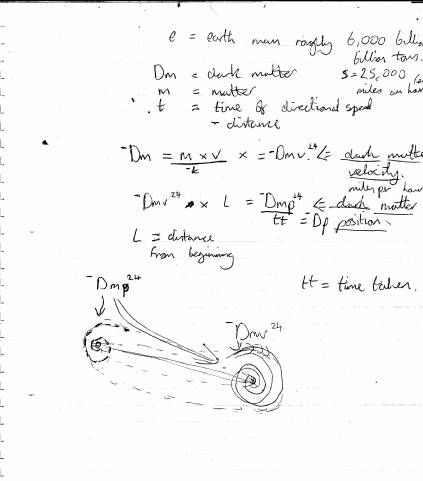 e = earth mass roughly 6,000 billion
billion tons.
Dm = dark matter s = 25,000
m = matter miles an hour
t = time of directional speed
- distance
-Dm = m x v x = -Dmv.24 <= dark matter
-k velocity.
miles per hour
-Dmv24 x L = -Dmp24 <= dark matter
tt = -Dp position.
L = distance
from beginning
tt = time taken.
-Dmp24
-Dmv24